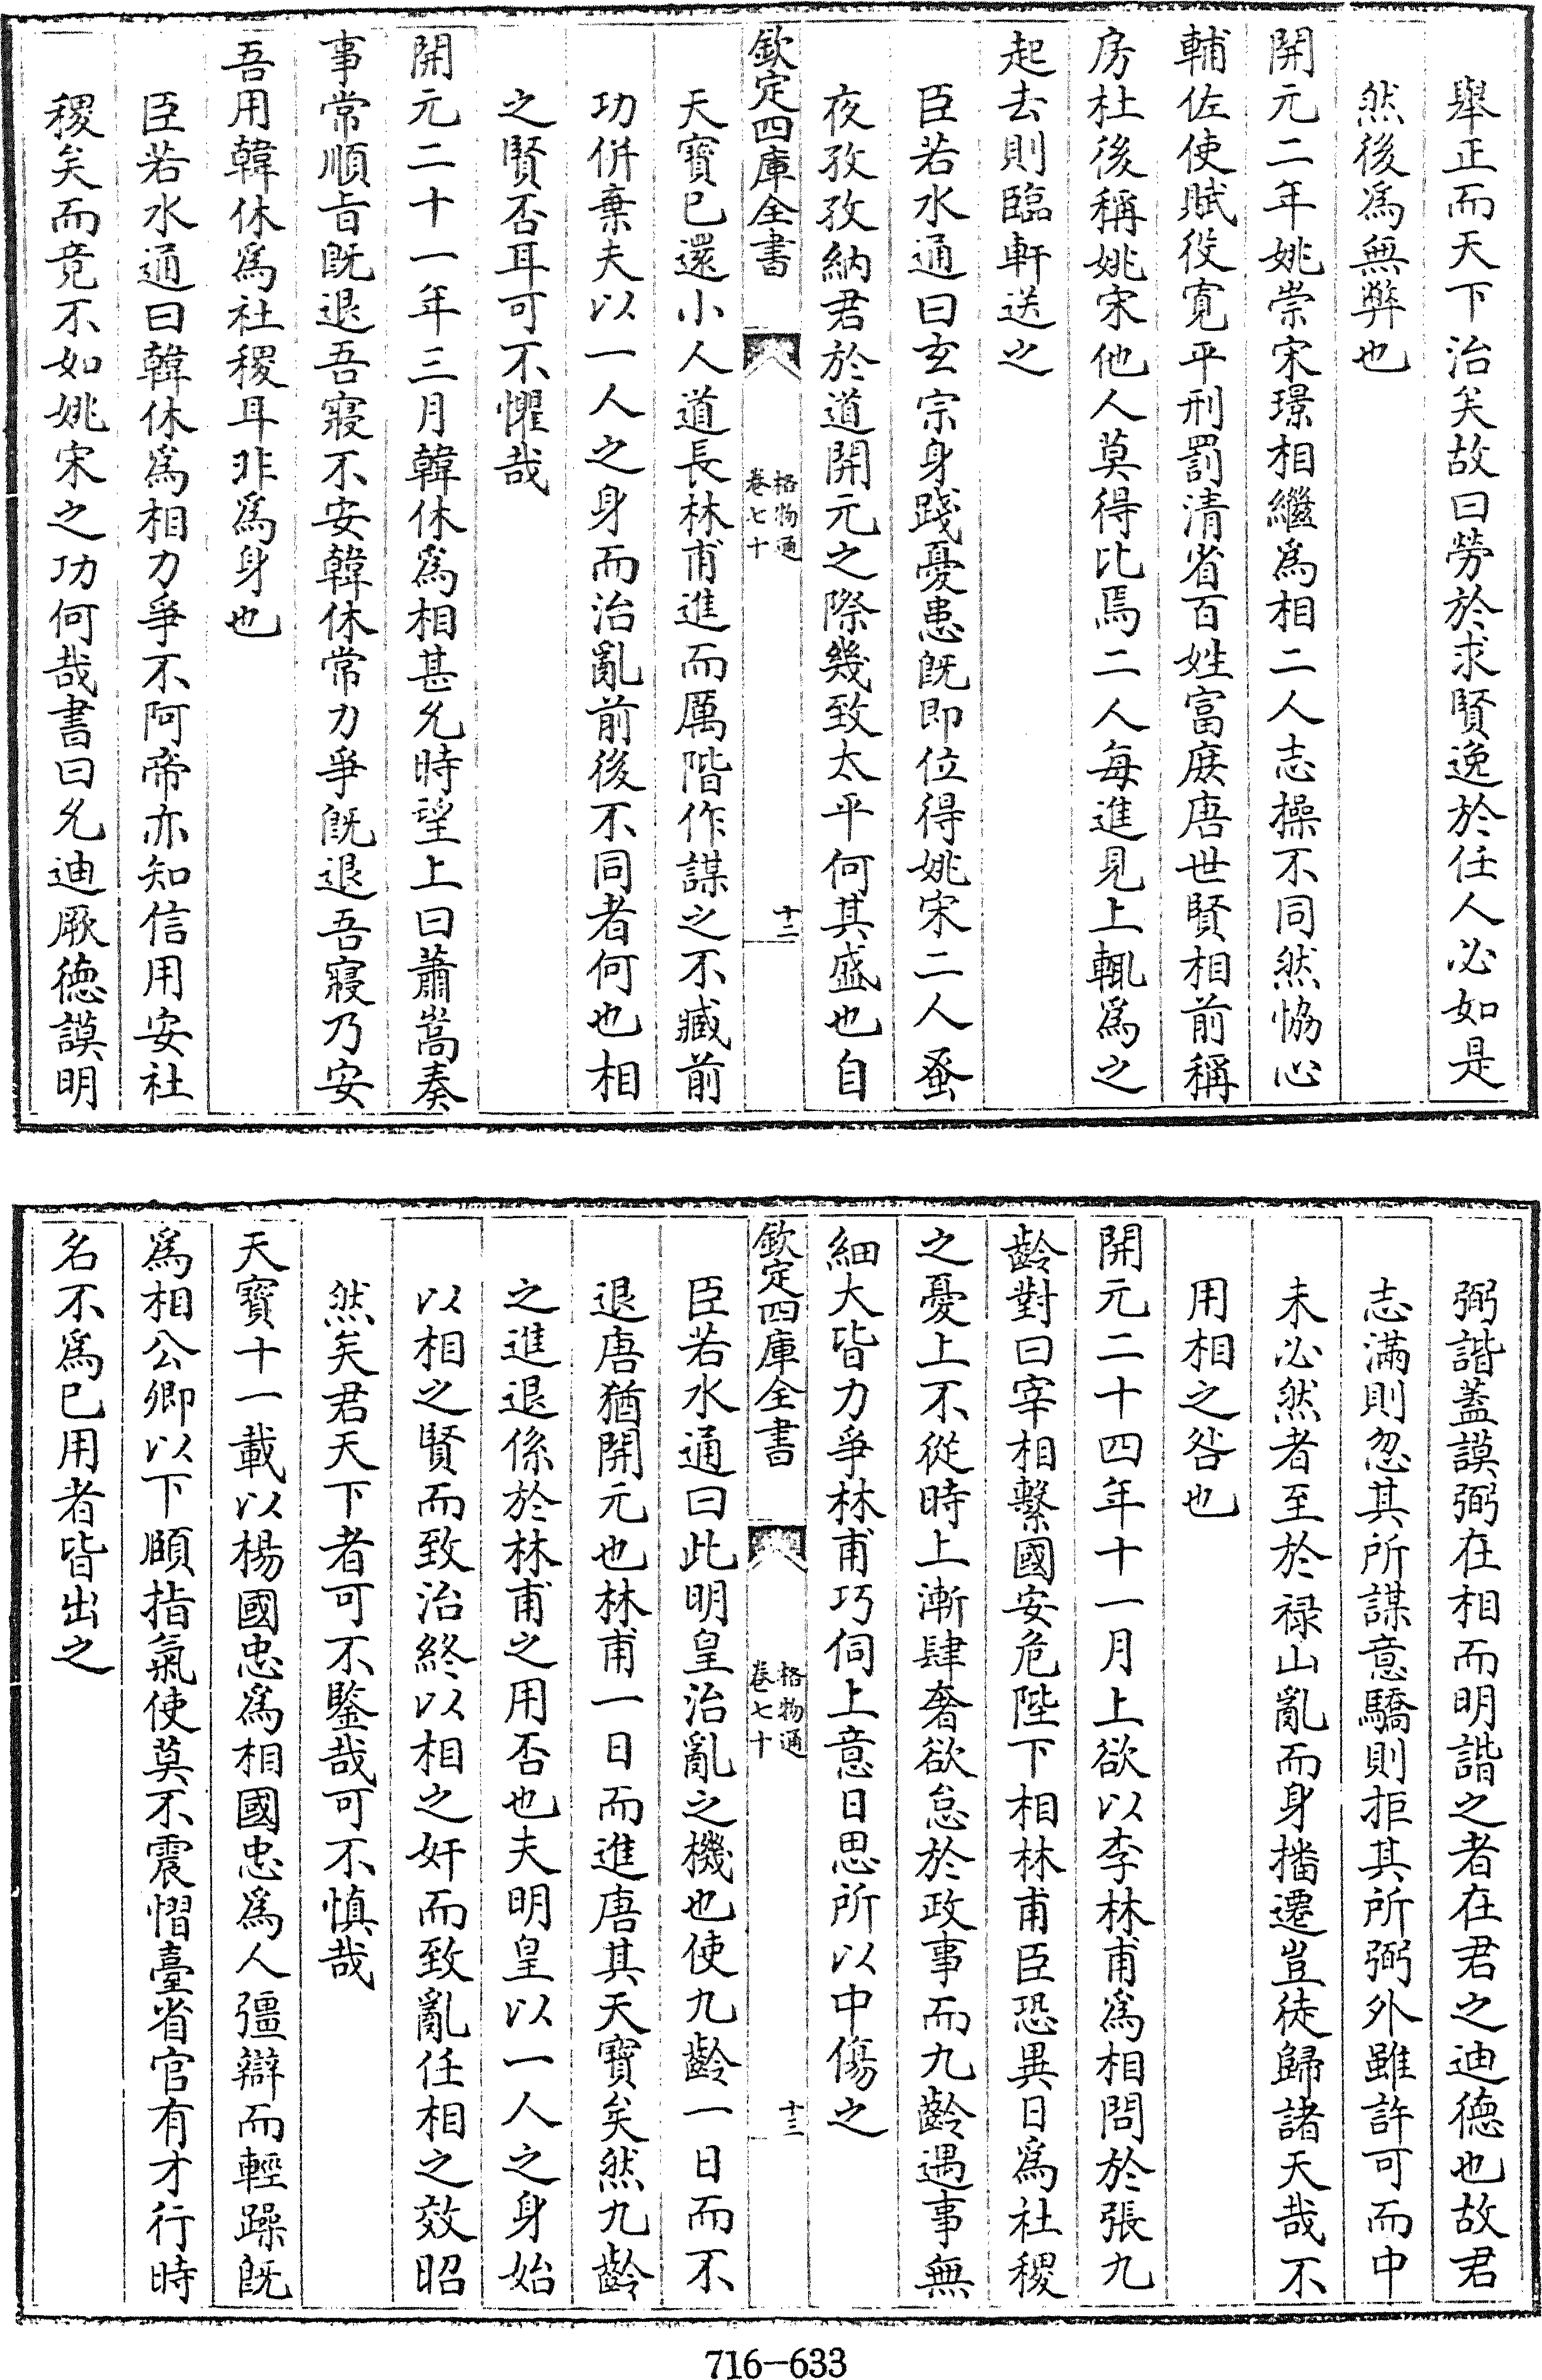 舉正而天下治矣故曰勞於求賢逸於任人必如是
然後為無弊也
開元二年姚崇宋璟相繼為相二人志操不同然恊心
輔佐使賦役寛平刑罰清省百姓富庶唐世賢相前稱
房杜後稱姚宋他人莫得比焉二人每進見上輒為之
起去則臨軒送之
臣若水通曰玄宗身踐憂患既即位得姚宋二人蚤
夜孜孜納君於道開元之際幾致太平何其盛也自
欽定四庫全書
格物通
卷七十
十二
天寳已還小人道長林甫進而厲階作謀之不臧前
功併棄夫以一人之身而治亂前後不同者何也相
之賢否耳可不懼哉
開元二十一年三月韓休為相甚允時望上曰蕭嵩奏
事常順旨既退吾寢不安韓休常力爭既退吾寢乃安
吾用韓休為社稷耳非為身也
臣若水通曰韓休為相力爭不阿帝亦知信用安社
稷矣而竟不如姚宋之功何哉書曰允迪厥德謨明
弼諧蓋謨弼在相而明諧之者在君之迪德也故君
志滿則忽其所謀意驕則拒其所弼外雖許可而中
未必然者至於禄山亂而身播遷豈徒歸諸天哉不
用相之咎也
開元二十四年十一月上欲以李林甫為相問於張九
齡對曰宰相繫國安危陛下相林甫臣恐異日為社稷
之憂上不從時上漸肆奢欲怠於政事而九齡遇事無
細大皆力爭林甫巧伺上意日思所以中傷之
欽定四庫全書
格物通
卷七十
十三
臣若水通曰此明皇治亂之機也使九齡一日而不
退唐猶開元也林甫一日而進唐其天寳矣然九齡
之進退係於林甫之用否也夫明皇以一人之身始
以相之賢而致治終以相之奸而致亂任相之效昭
然矣君天下者可不鑒哉可不慎哉
天寳十一載以楊國忠為相國忠為人彊辯而輕躁既
為相公卿以下頤指氣使莫不震慴臺省官有才行時
名不為已用者皆出之
716-633